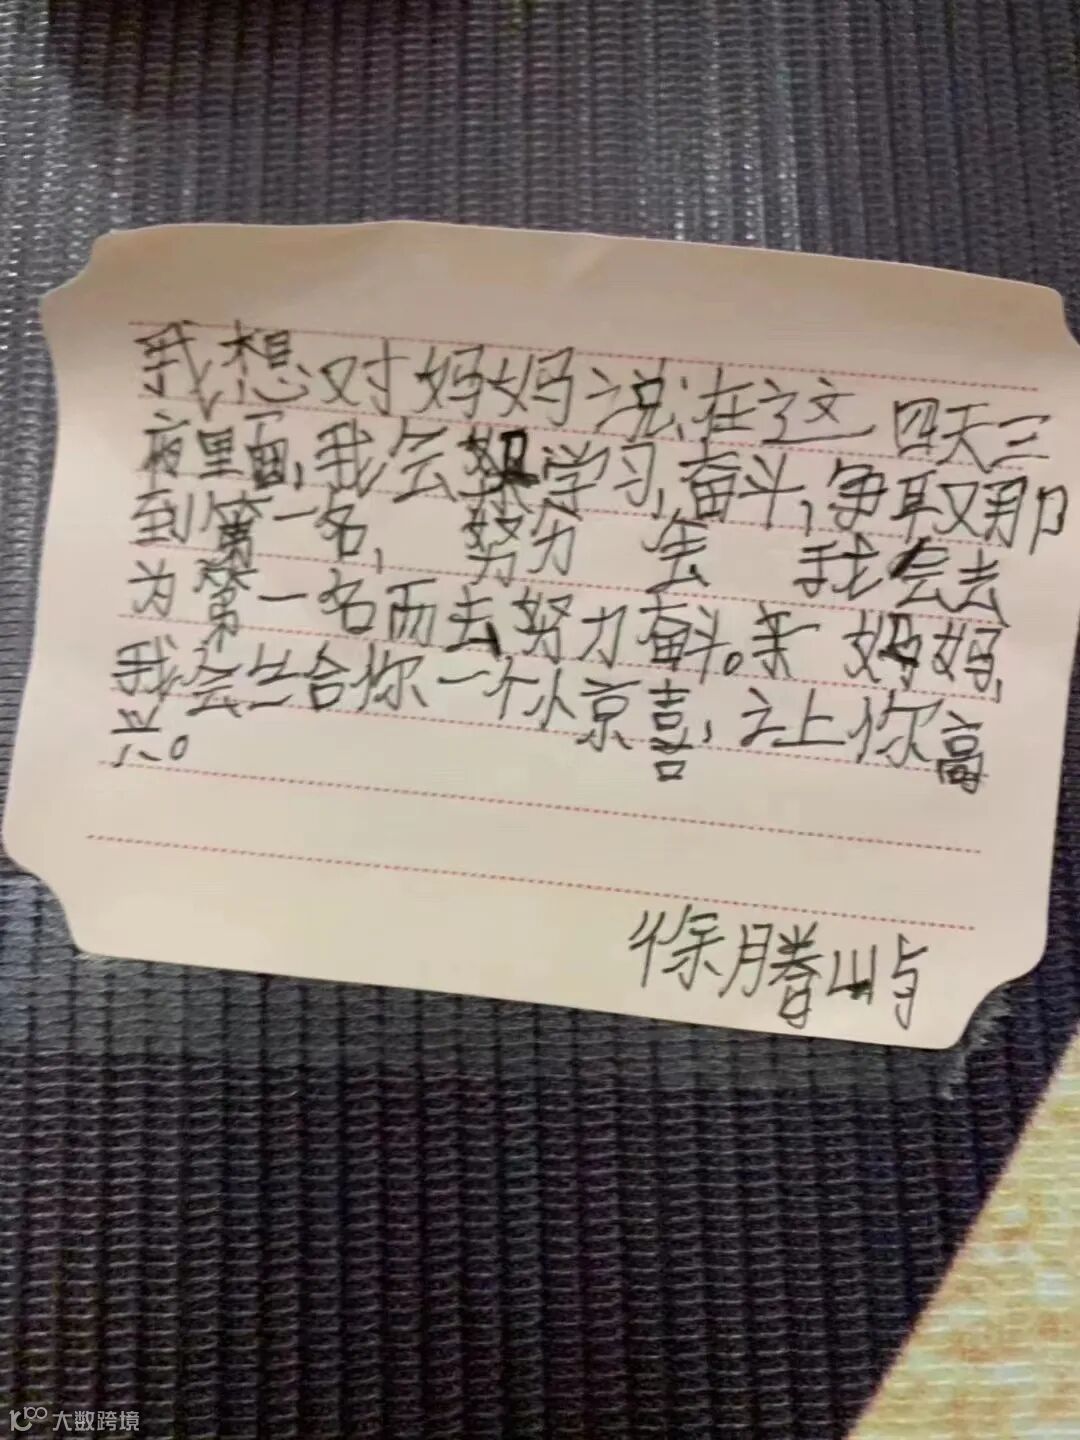 我想对妈妈说,在这四天三
夜里面,我会努力学习,奋斗,争取那
到第一名,努力 去 我会去
为第一名而去努力奋斗。亲 妈妈,
我会给你一个小惊喜,让你高
兴。
徐腾屿
大数跨境